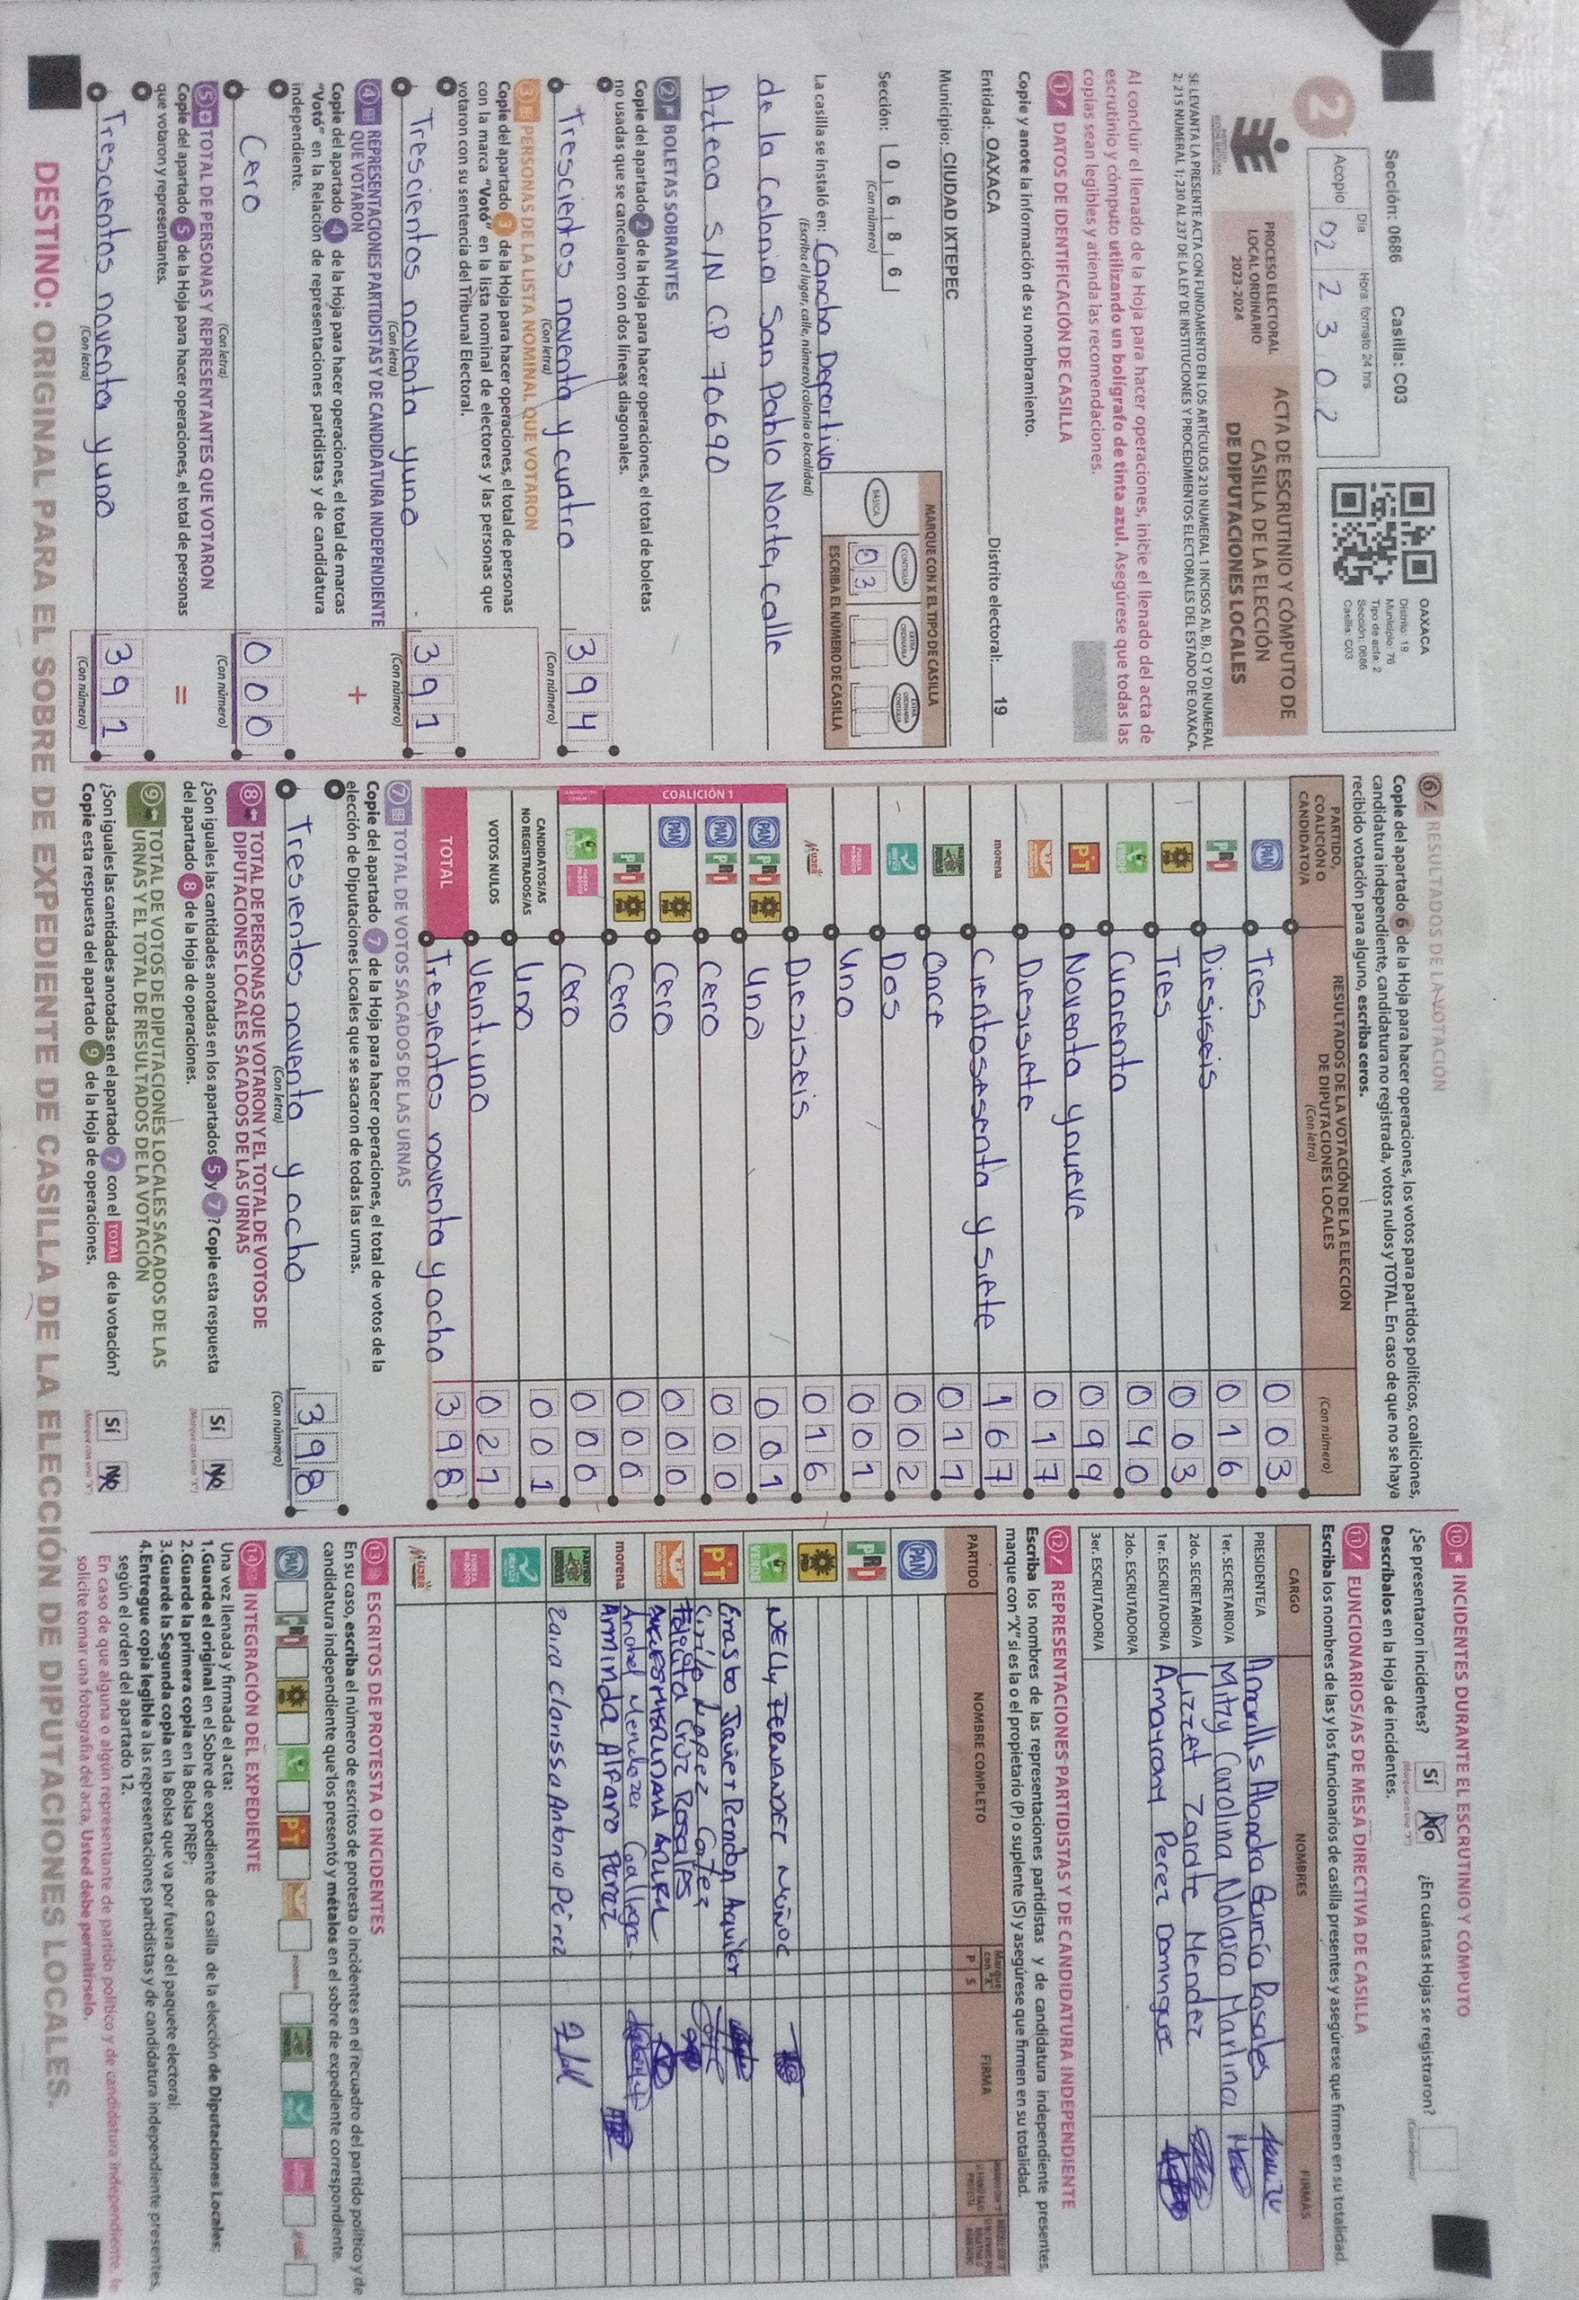 Sección: 0686 Casilla: C03
2
Acopio
Día
Hora: formato 24 hrs
02 23 02
OAXACA
Distrito: 19
Municipio: 76
Tipo de acta: 2
Sección: 0686
Casilla: C03
PROCESO ELECTORAL
LOCAL ORDINARIO
2023-2024
ACTA DE ESCRUTINIO Y CÓMPUTO DE
CASILLA DE LA ELECCIÓN
DE DIPUTACIONES LOCALES
SE LEVANTA LA PRESENTE ACTA CON FUNDAMENTO EN LOS ARTÍCULOS 210 NUMERAL 1 INCISOS A), B), C) Y D) NUMERAL
2; 215 NUMERAL 1; 230 AL 237 DE LA LEY DE INSTITUCIONES Y PROCEDIMIENTOS ELECTORALES DEL ESTADO DE OAXACA.
Al concluir el llenado de la Hoja para hacer operaciones, inicie el llenado del acta de
escrutinio y cómputo utilizando un bolígrafo de tinta azul. Asegúrese que todas las
copias sean legibles y atienda las recomendaciones.
1 DATOS DE IDENTIFICACIÓN DE CASILLA
Copie y anote la información de su nombramiento.
Entidad: OAXACA Distrito electoral: 19
Municipio: CIUDAD IXTEPEC
Sección: 0 6 8 6
(Con número)
MARQUE CON X EL TIPO DE CASILLA
BÁSICA
CONTIGUA
EXTRA ORDINARIA
EXTRA ORDINARIA CONTIGUA
0 3
ESCRIBA EL NÚMERO DE CASILLA
La casilla se instaló en: Cancha Deportiva
(Escriba el lugar, calle, número, colonia o localidad)
de la Colonia San Pablo Norte, calle
Azteca S/N C.P 70690
2 BOLETAS SOBRANTES
Copie del apartado 2 de la Hoja para hacer operaciones, el total de boletas
no usadas que se cancelaron con dos líneas diagonales.
Trescientos noventa y cuatro 394
(Con letra) (Con número)
3 PERSONAS DE LA LISTA NOMINAL QUE VOTARON
Copie del apartado 3 de la Hoja para hacer operaciones, el total de personas
con la marca "Votó" en la lista nominal de electores y las personas que
votaron con su sentencia del Tribunal Electoral.
Trescientos noventa y uno 391
(Con letra) (Con número)
4 REPRESENTACIONES PARTIDISTAS Y DE CANDIDATURA INDEPENDIENTE
QUE VOTARON
Copie del apartado 4 de la Hoja para hacer operaciones, el total de marcas
"Votó" en la Relación de representaciones partidistas y de candidatura
independiente.
+
Cero 000
(Con letra) (Con número)
5 TOTAL DE PERSONAS Y REPRESENTANTES QUE VOTARON
Copie del apartado 5 de la Hoja para hacer operaciones, el total de personas
que votaron y representantes.
=
Trescientos noventa y uno 391
(Con letra) (Con número)
6 RESULTADOS DE LA VOTACIÓN
Copie del apartado 6 de la Hoja para hacer operaciones, los votos para partidos políticos, coaliciones,
candidatura independiente, candidatura no registrada, votos nulos y TOTAL. En caso de que no se haya
recibido votación para alguno, escriba ceros.
PARTIDO, COALICIÓN O CANDIDATO/A
RESULTADOS DE LA VOTACIÓN DE LA ELECCIÓN
DE DIPUTACIONES LOCALES
(Con letra) (Con número)
PAN Tres 003
PRI Diesiseis 016
PRD Tres 003
VERDE Cuarenta 040
PT Noventa y nueve 099
Diesisiete 017
morena Cientosesenta y siete 167
Once 011
Dos 002
FUERZA MÉXICO Uno 001
MUJER Diesiseis 016
COALICIÓN 1
PAN PRI PRD uno 001
PAN PRI Cero 000
PAN PRD Cero 000
PRI PRD Cero 000
VERDE FUERZA MÉXICO Cero 000
CANDIDATOS/AS NO REGISTRADOS/AS Uno 001
VOTOS NULOS Veintiuno 021
TOTAL Tresientos noventa y ocho 398
7 TOTAL DE VOTOS SACADOS DE LAS URNAS
Copie del apartado 7 de la Hoja para hacer operaciones, el total de votos de la
elección de Diputaciones Locales que se sacaron de todas las urnas.
Tresientos noventa y ocho 398
(Con letra) (Con número)
8 TOTAL DE PERSONAS QUE VOTARON Y EL TOTAL DE VOTOS DE
DIPUTACIONES LOCALES SACADOS DE LAS URNAS
¿Son iguales las cantidades anotadas en los apartados 5 y 7? Copie esta respuesta
del apartado 8 de la Hoja de operaciones.
Sí No
9 TOTAL DE VOTOS DE DIPUTACIONES LOCALES SACADOS DE LAS
URNAS Y EL TOTAL DE RESULTADOS DE LA VOTACIÓN
¿Son iguales las cantidades anotadas en el apartado 7 con el TOTAL de la votación?
Copie esta respuesta del apartado 9 de la Hoja de operaciones.
Sí No
10 INCIDENTES DURANTE EL ESCRUTINIO Y CÓMPUTO
¿Se presentaron incidentes? Sí No ¿En cuántas Hojas se registraron?
(Con número)
Descríbalos en la Hoja de incidentes.
11 FUNCIONARIOS/AS DE MESA DIRECTIVA DE CASILLA
Escriba los nombres de las y los funcionarios de casilla presentes y asegúrese que firmen en su totalidad.
CARGO NOMBRES FIRMAS
PRESIDENTE/A Amarillis Alondra García Rosales
1er. SECRETARIO/A Mitzy Carolina Nolasco Martinez
2do. SECRETARIO/A Lizzet Zarate Mendez
1er. ESCRUTADOR/A Amayrany Perez Dominguez
2do. ESCRUTADOR/A
3er. ESCRUTADOR/A
12 REPRESENTACIONES PARTIDISTAS Y DE CANDIDATURA INDEPENDIENTE
Escriba los nombres de las representaciones partidistas y de candidatura independiente presentes,
marque con "X" si es la o el propietario (P) o suplente (S) y asegúrese que firmen en su totalidad.
PARTIDO NOMBRE COMPLETO
Marque con "X"
P S
FIRMA
PAN
PRI
PRD
VERDE NELLY FERNANDEZ MUÑOZ
Erasto Javier Rendon Aquilar
PT Cirilo Lopez Cortez
Felicita Cruz Rosales
Anahel Mendoza Gallegos
morena Arminda Alfaro Perez
Zaira Clarissa Antonio Pérez
FUERZA MÉXICO
MUJER
13 ESCRITOS DE PROTESTA O INCIDENTES
En su caso, escriba el número de escritos de protesta o incidentes en el recuadro del partido político y de
candidatura independiente que los presentó y métalos en el sobre de expediente correspondiente.
PAN PRI PRD VERDE PT morena
14 INTEGRACIÓN DEL EXPEDIENTE
Una vez llenada y firmada el acta:
1.Guarde el original en el Sobre de expediente de casilla de la elección de Diputaciones Locales;
2.Guarde la primera copia en la Bolsa PREP;
3.Guarde la Segunda copia en la Bolsa que va por fuera del paquete electoral;
4.Entregue copia legible a las representaciones partidistas y de candidatura independiente presentes,
según el orden del apartado 12.
En caso de que alguna o algún representante de partido político y de candidatura independiente, le
solicite tomar una fotografía del acta, Usted debe permitírselo.
DESTINO: ORIGINAL PARA EL SOBRE DE EXPEDIENTE DE CASILLA DE LA ELECCIÓN DE DIPUTACIONES LOCALES.